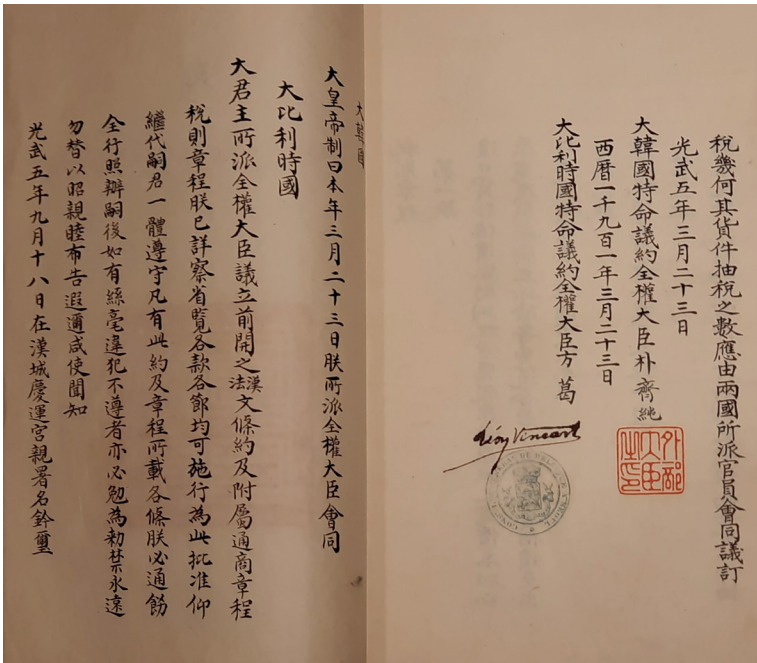 稅幾何其貨件抽稅之數應由兩國所派官員會同議訂
光武五年三月二十三日
大韓國特命議約全權大臣朴齊純
外部大臣之印
西曆一千九百一年三月二十三日
大比利時國特命議約全權大臣方葛
Léon Vincart
大韓國
大皇帝制曰本年三月二十三日朕所派全權大臣會同
大比利時國
大君主所派全權大臣議立前開之漢法文條約及附屬通商章程
稅則章程朕已詳察省覽各款各節均可施行為此批准仰
繼代嗣君一體遵守凡有此約及章程所載各條朕必通飭
全行照辦嗣後如有絲毫違犯不遵者亦必勉為勅禁永遠
勿替以昭親睦布告遐邇咸使聞知
光武五年九月十八日在漢城慶運宮親署名鈐璽